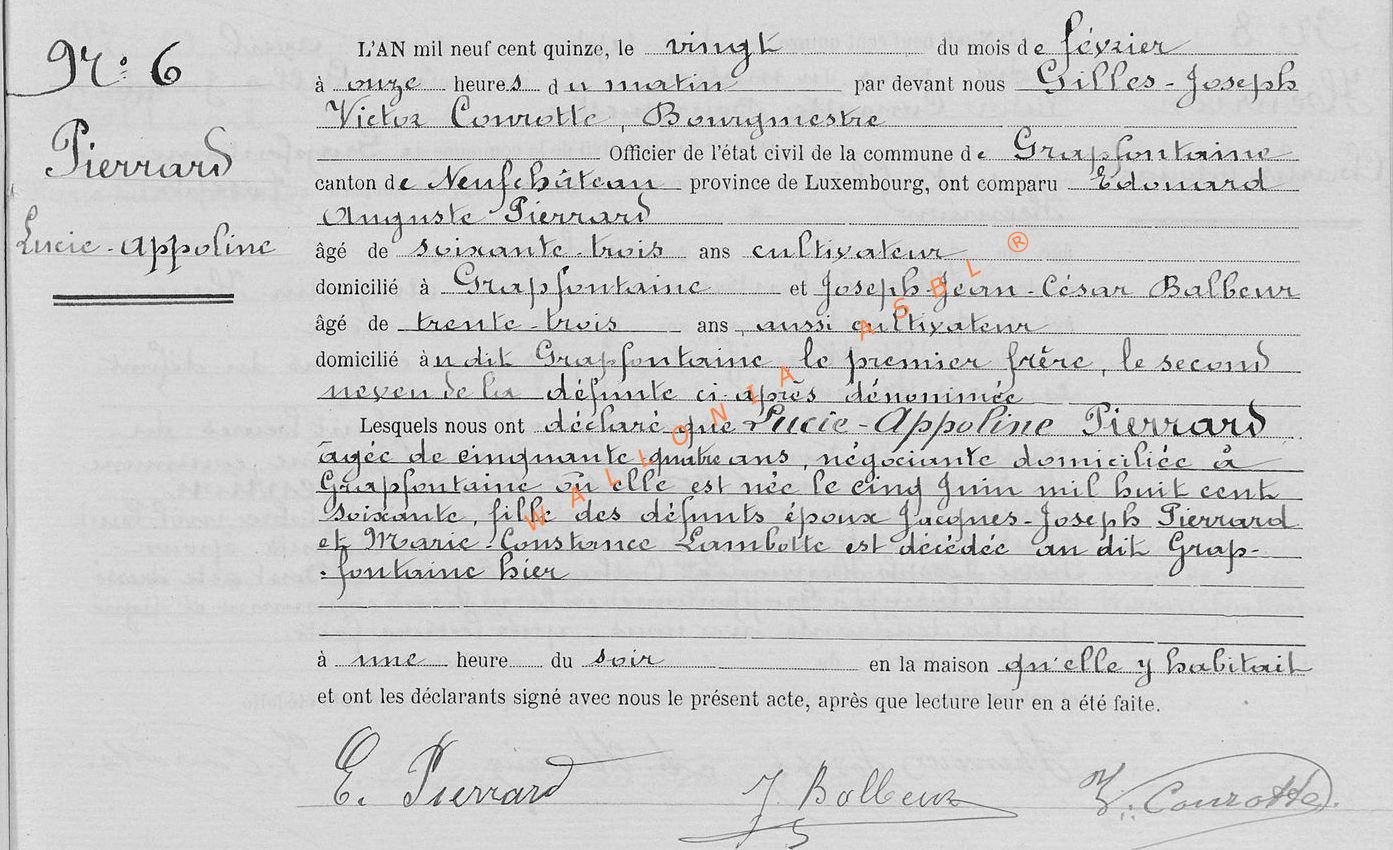 Nr: 6
Pierrard
Lucie-Appoline
L'AN mil neuf cent quinze, le vingt du mois de février
à onze heures du matin par devant nous Gilles-Joseph
Victor Courotte, Bourgmestre
Officier de l'état civil de la commune de Grapfontaine
canton de Neufchâteau province de Luxembourg, ont comparu Edouard
Auguste Pierrard
âgé de soixante-trois ans cultivateur
domicilié à Grapfontaine et Joseph-Jean-César Balbeur
âgé de trente-trois ans, aussi cultivateur
domicilié àu dit Grapfontaine, le premier frère, le second
neveu de la défunte ci-après dénommée
Lesquels nous ont déclaré que Lucie-Appoline Pierrard
âgée de cinquante quatre ans, négociante domiciliée à
Grapfontaine où elle est née le cinq Juin mil huit cent
soixante, fille des défunts époux Jacques-Joseph Pierrard
et Marie-Constance Lambotte est décédée au dit Grap-
:fontaine hier
à une heure du soir en la maison qu'elle y habitait
et ont les déclarants signé avec nous le présent acte, après que lecture leur en a été faite.
E. Pierrard J Balbeur V. Courotte.
WALLONIA ASBL ®